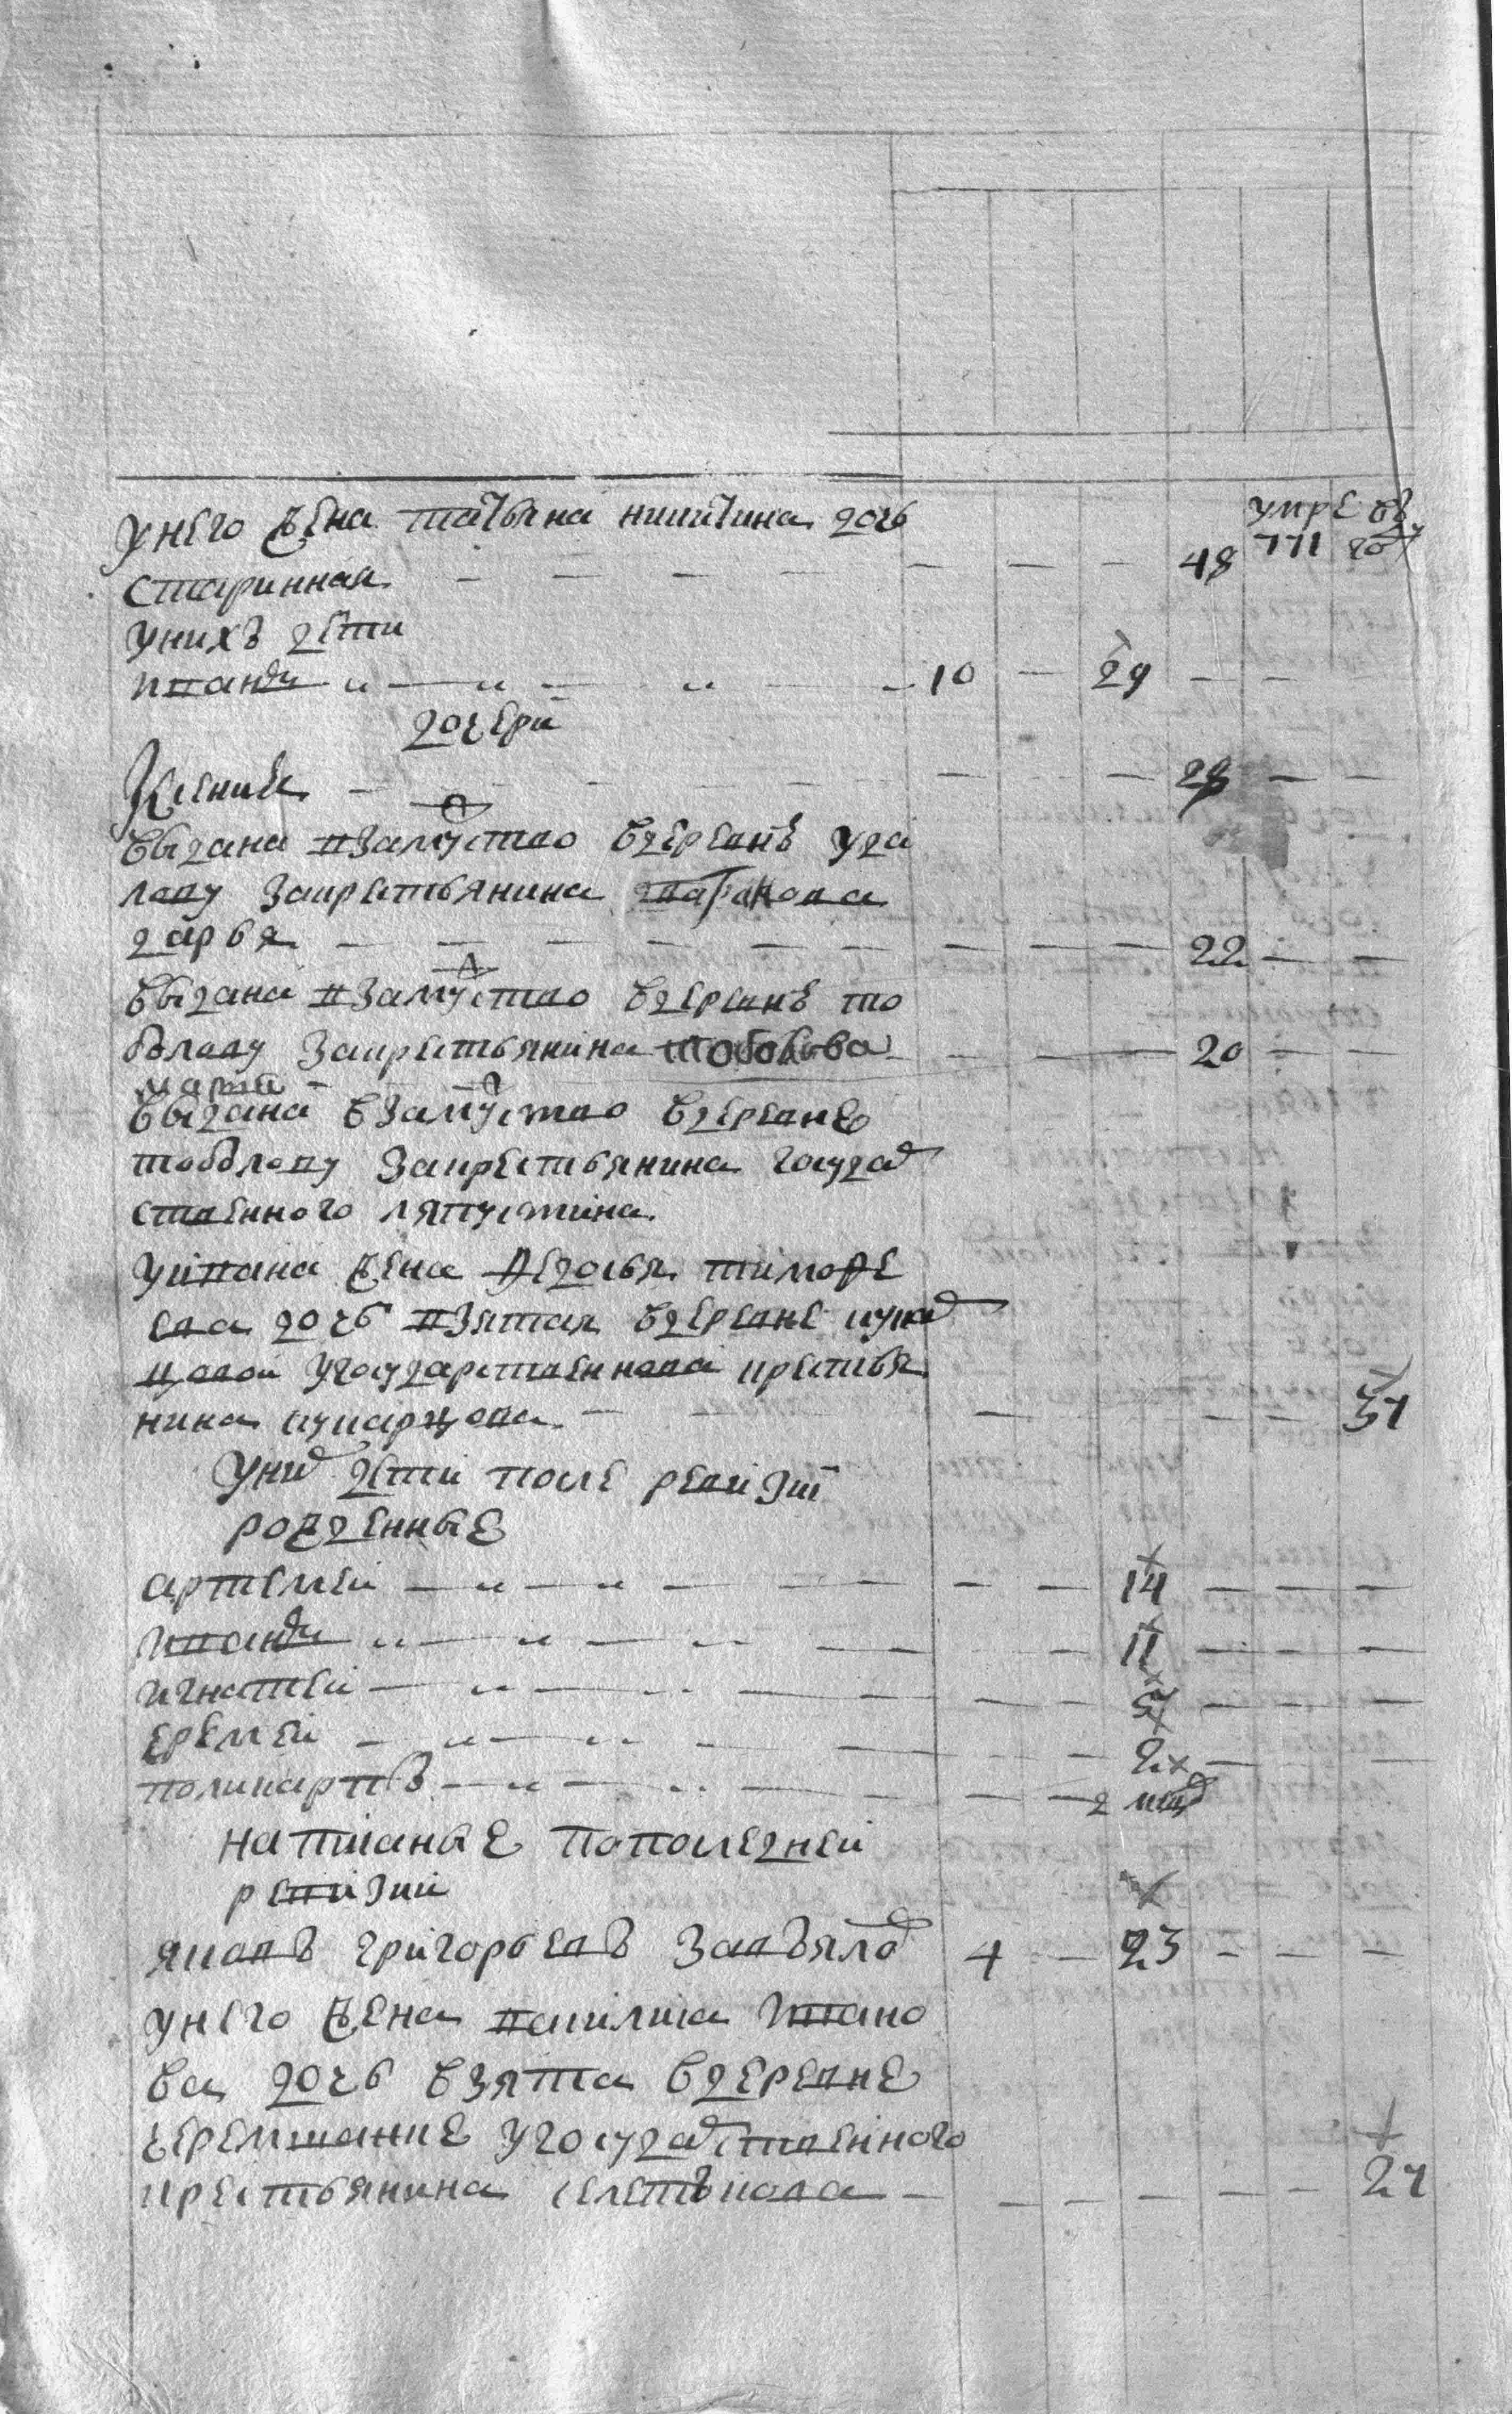 у него жена татьяна никитина дочь умре въ
старинная 48 771 году
у нихъ дети
иванъ 10 29
дочери
Ксения 28
выдана взамужство вдеревнѣ уда
лову закрестьянина
дарья 22
выдана взамужство вдеревнѣ то
болову закрестьянина 20
марья
выдана взамужство вдеревне
тоболову закрестьянина государ
ственного ляпустина
уивана жена Ѳедосья тимоѳе
ева дочь взятая вдеревне
цовой угосударственнова крестья
нина 31
уних дети после ревизии
рожденные
артемей 14
иванъ 11
игнатей
еремей 2
поликарпъ 2 мѣся
написаные попоследней
ревизии
яковъ григорьевъ завьялов 4 23
унего жена василиса ивано
ва дочь взята вдеревне
черемшанке угосударственного
крестьянина 21